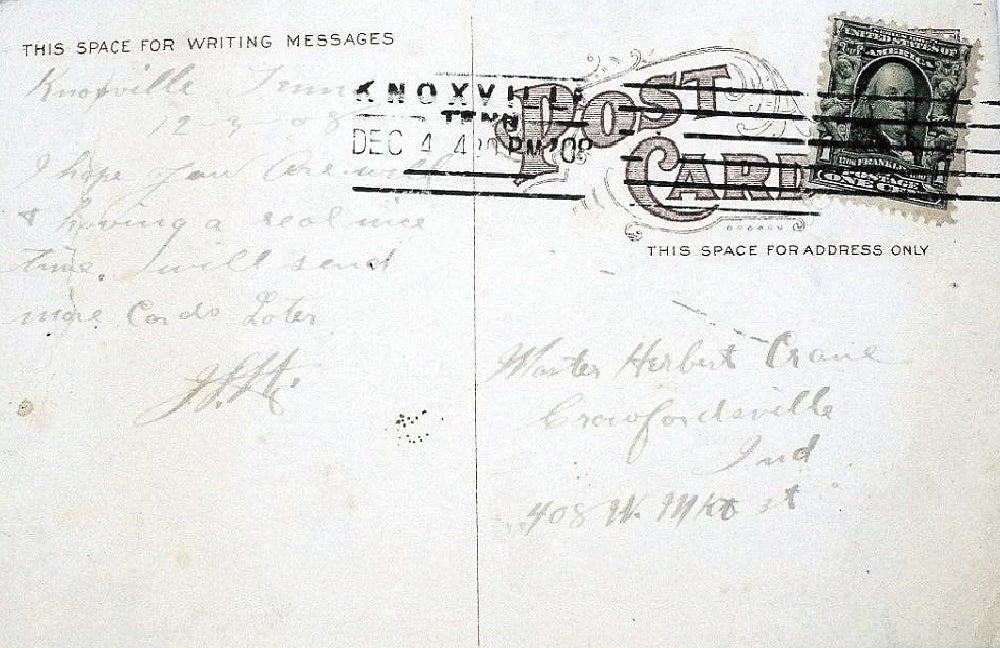 THIS SPACE FOR WRITING MESSAGES
Knoxville Tenn
12-3 08
I hope you are well
& having a real nice
time. I will send
more Cards Later
KNOXVILLE
TENN
DEC 4 4 PM '08
POST
CARD
UNITED STATES OF
AMERICA
FRANKLIN
POSTAGE
ONE CENT
THIS SPACE FOR ADDRESS ONLY
Master Herbert Crane
Crawfordsville
Ind
408 W. Mkt st